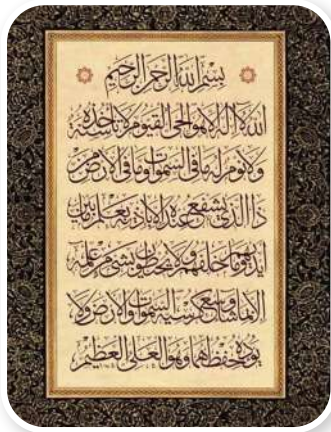 بسم الله الرحمن الرحيم
الله لا اله الا هو الحي القيوم لا تأخذه سنة
ولا نوم له ما في السموات وما في الارض من
ذا الذي يشفع عنده الا باذنه يعلم ما بين
ايديهم وما خلفهم ولا يحيطون بشيء من علمه
الا بما شاء وسع كرسيه السموات والارض ولا
يؤده حفظهما وهو العلي العظيم